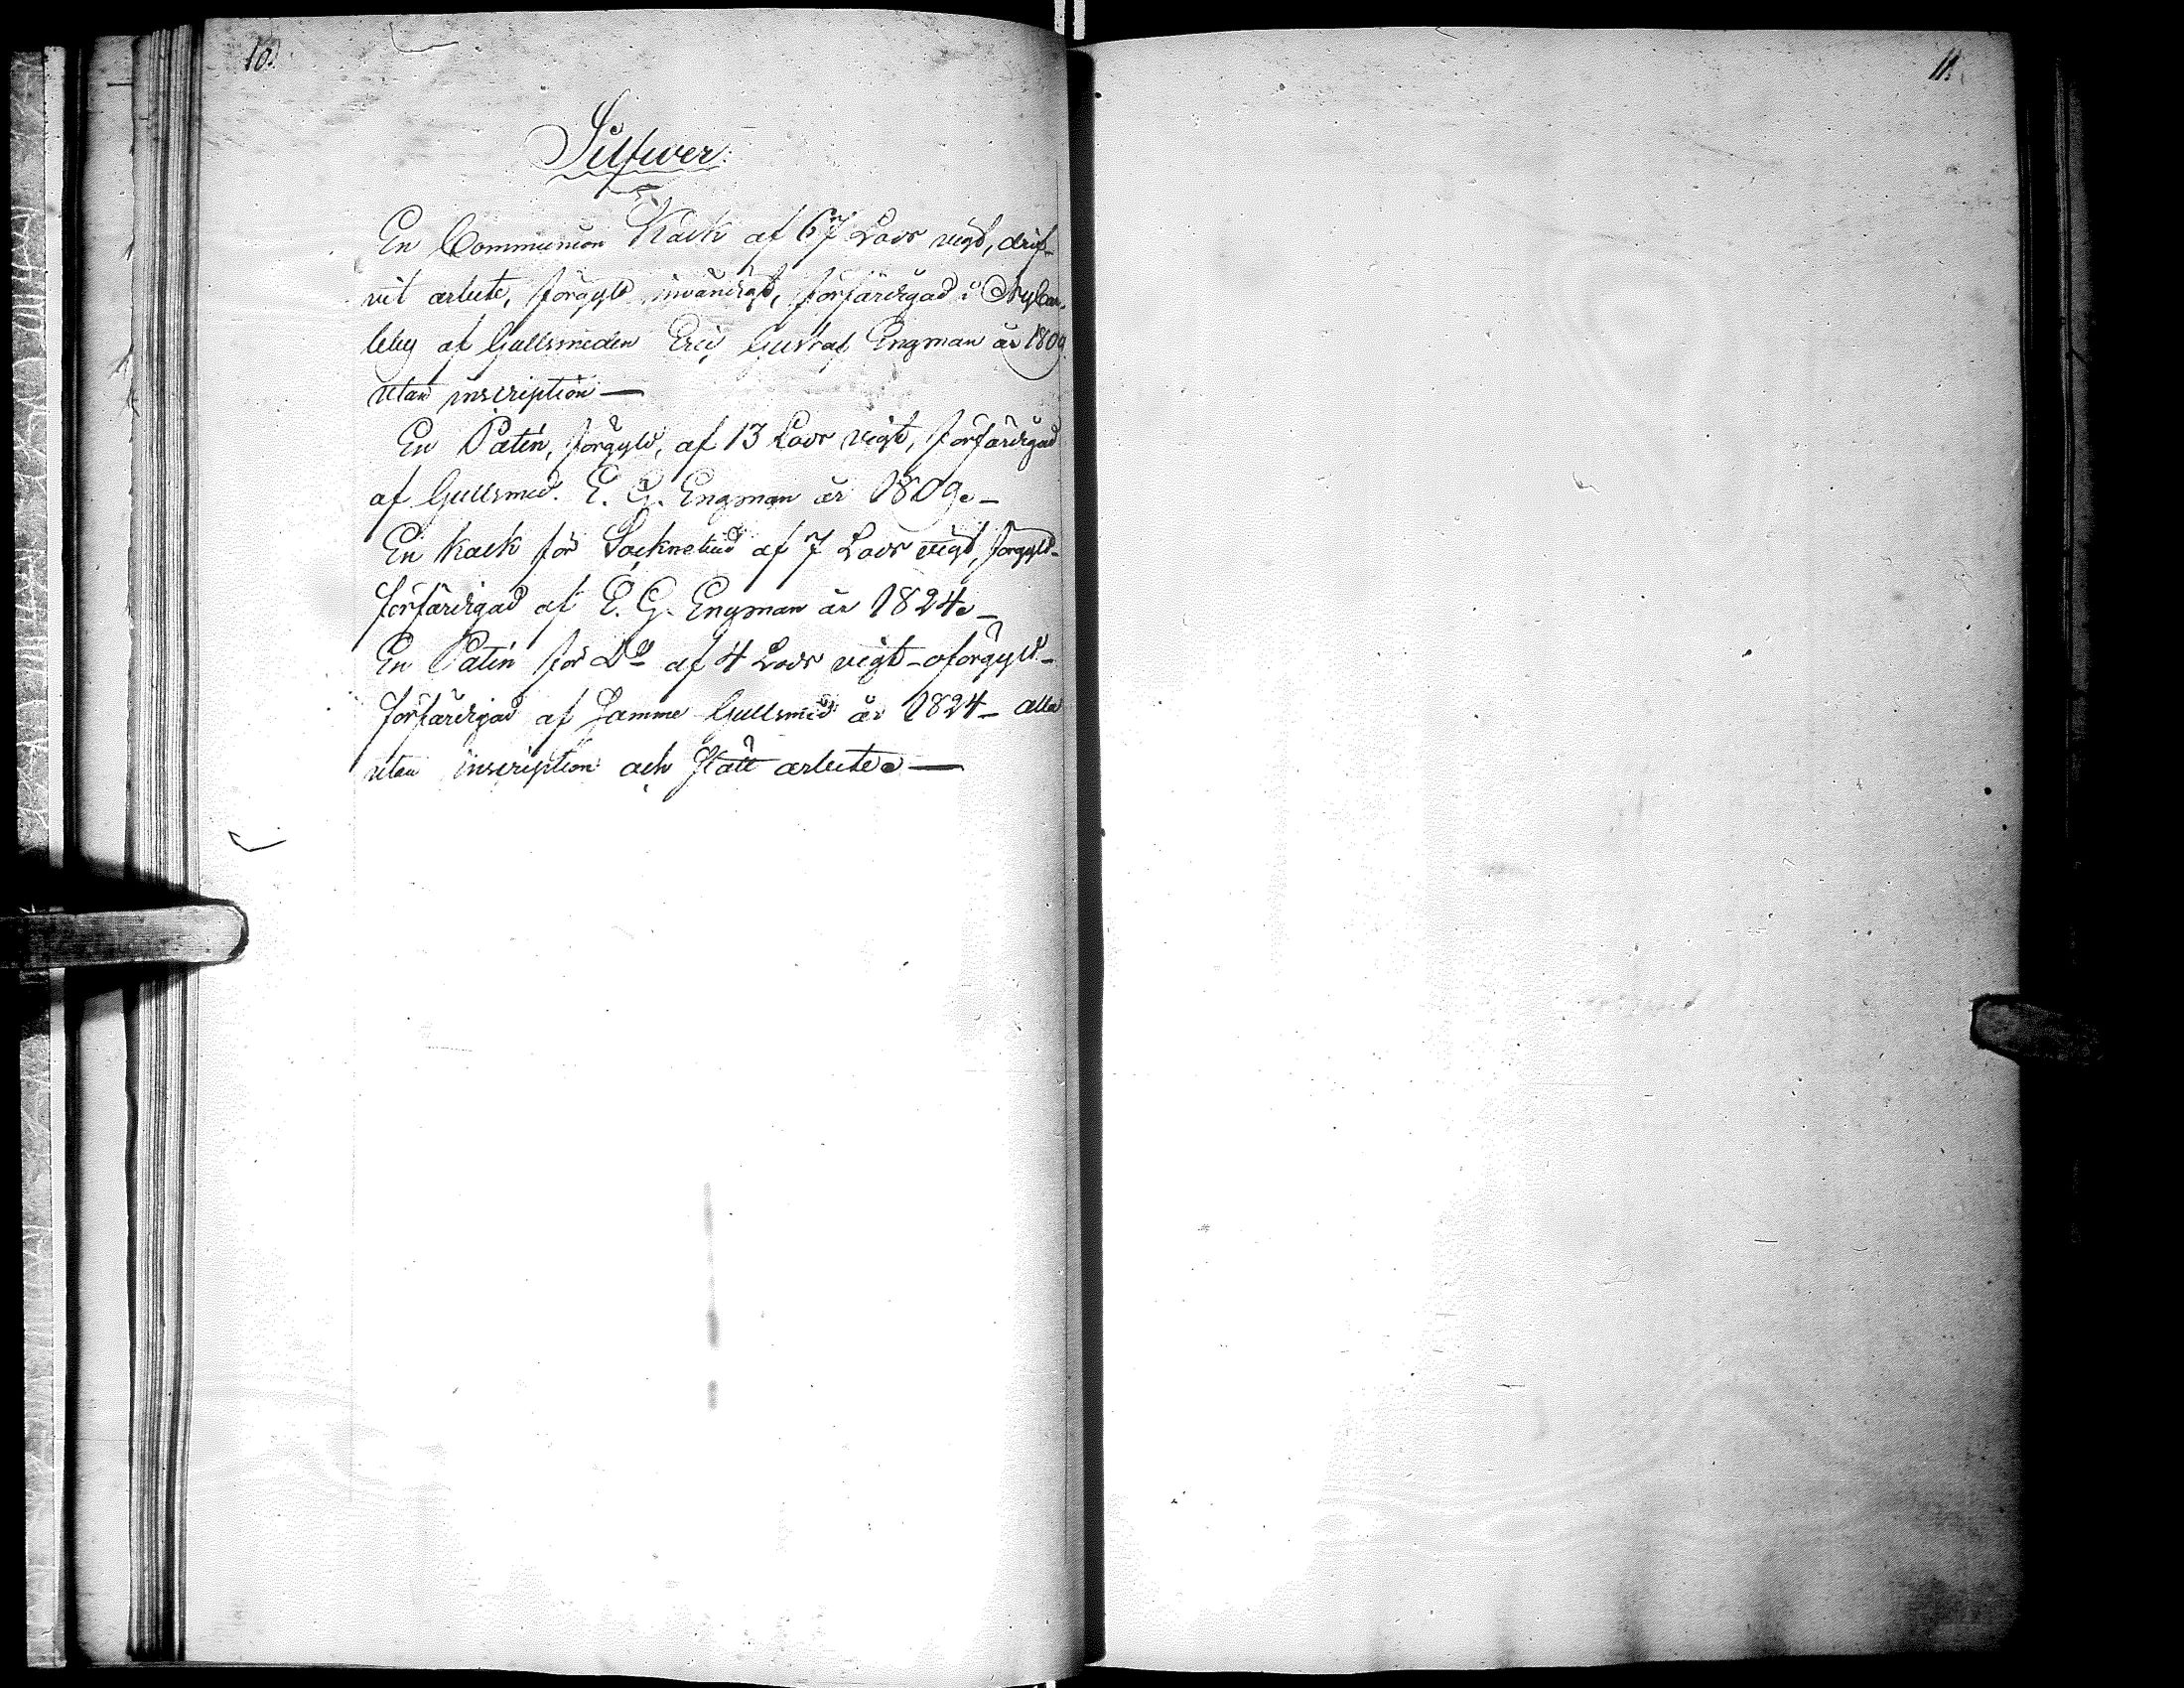 10.
Silfwer.
En Communion Kalk af 67 Lods vigt, drif-
vit arbete, förgyld invändigt, förfärdigad i Nycar-
leby af Gullsmeden Eric Gustaf Engman år 1809.
utan inscription —
En Patèn, förgyld, af 13 Lods vigt, förfärdigad
af Gullsmed. E. G. Engman år 1809. —
En Kalk för Socknebud af 7 Lods vigt, förgyld -
förfärdigad af E. G. Engman år 1824. —
En Patèn för Do af 4 Lods vigt - oförgyld -
förfärdigad af Samme Gullsmed år 1824 - alla
utan inscription och slätt arbete. —
11.